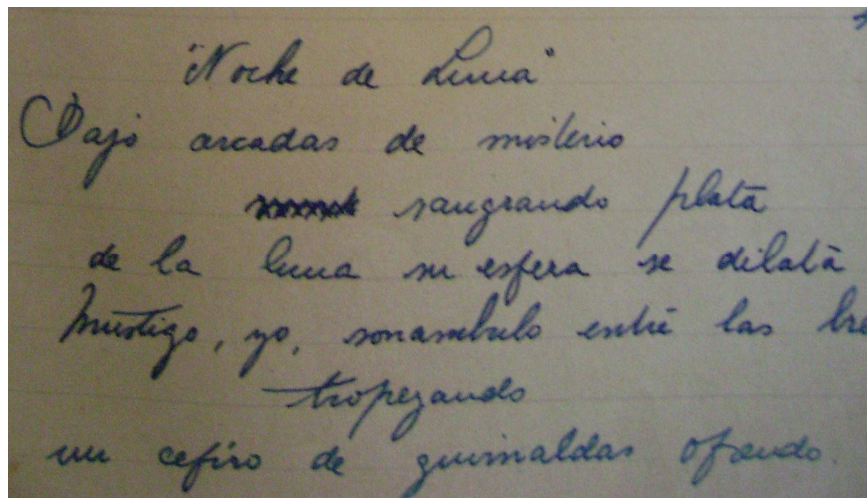 "Noche de Luna"
Bajo arcadas de misterio
sangrando plata
de la luna su esfera se dilata
Mustigo, yo, sonambulo entre las
tropezando
un cefiro de guirnaldas